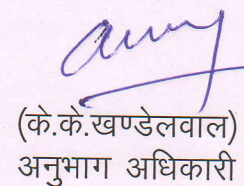 (के.के.खण्डेलवाल)
अनुभाग अधिकारी